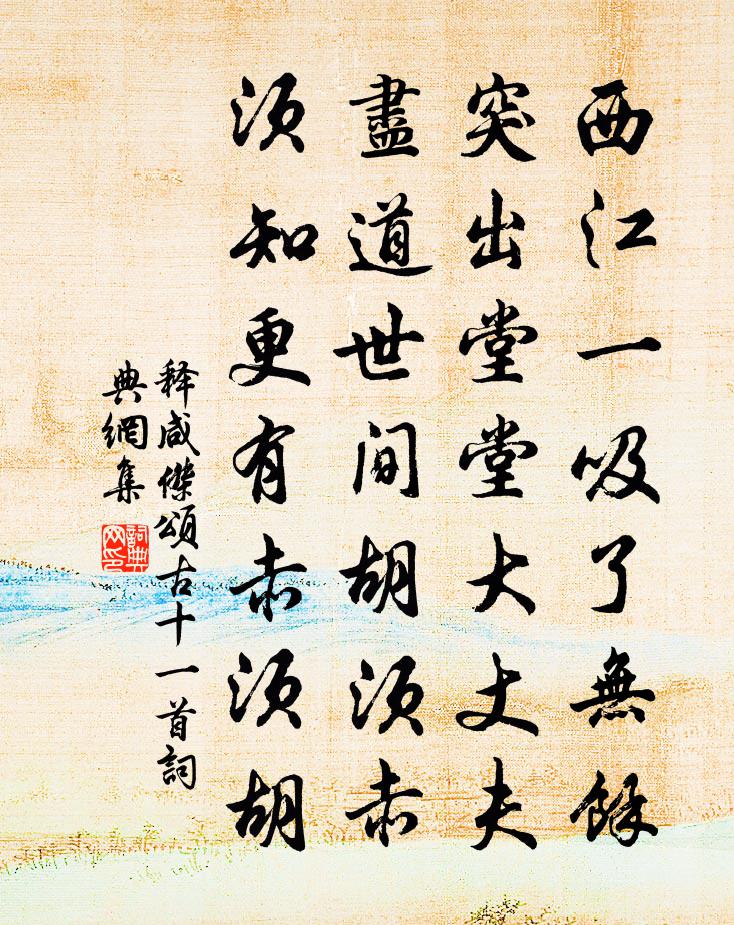 西江一吸了無餘
突出堂堂大丈夫
盡道世间胡须赤
须知更有赤须胡
释咸傑頌古十一首詞
典網集
詞典
网印